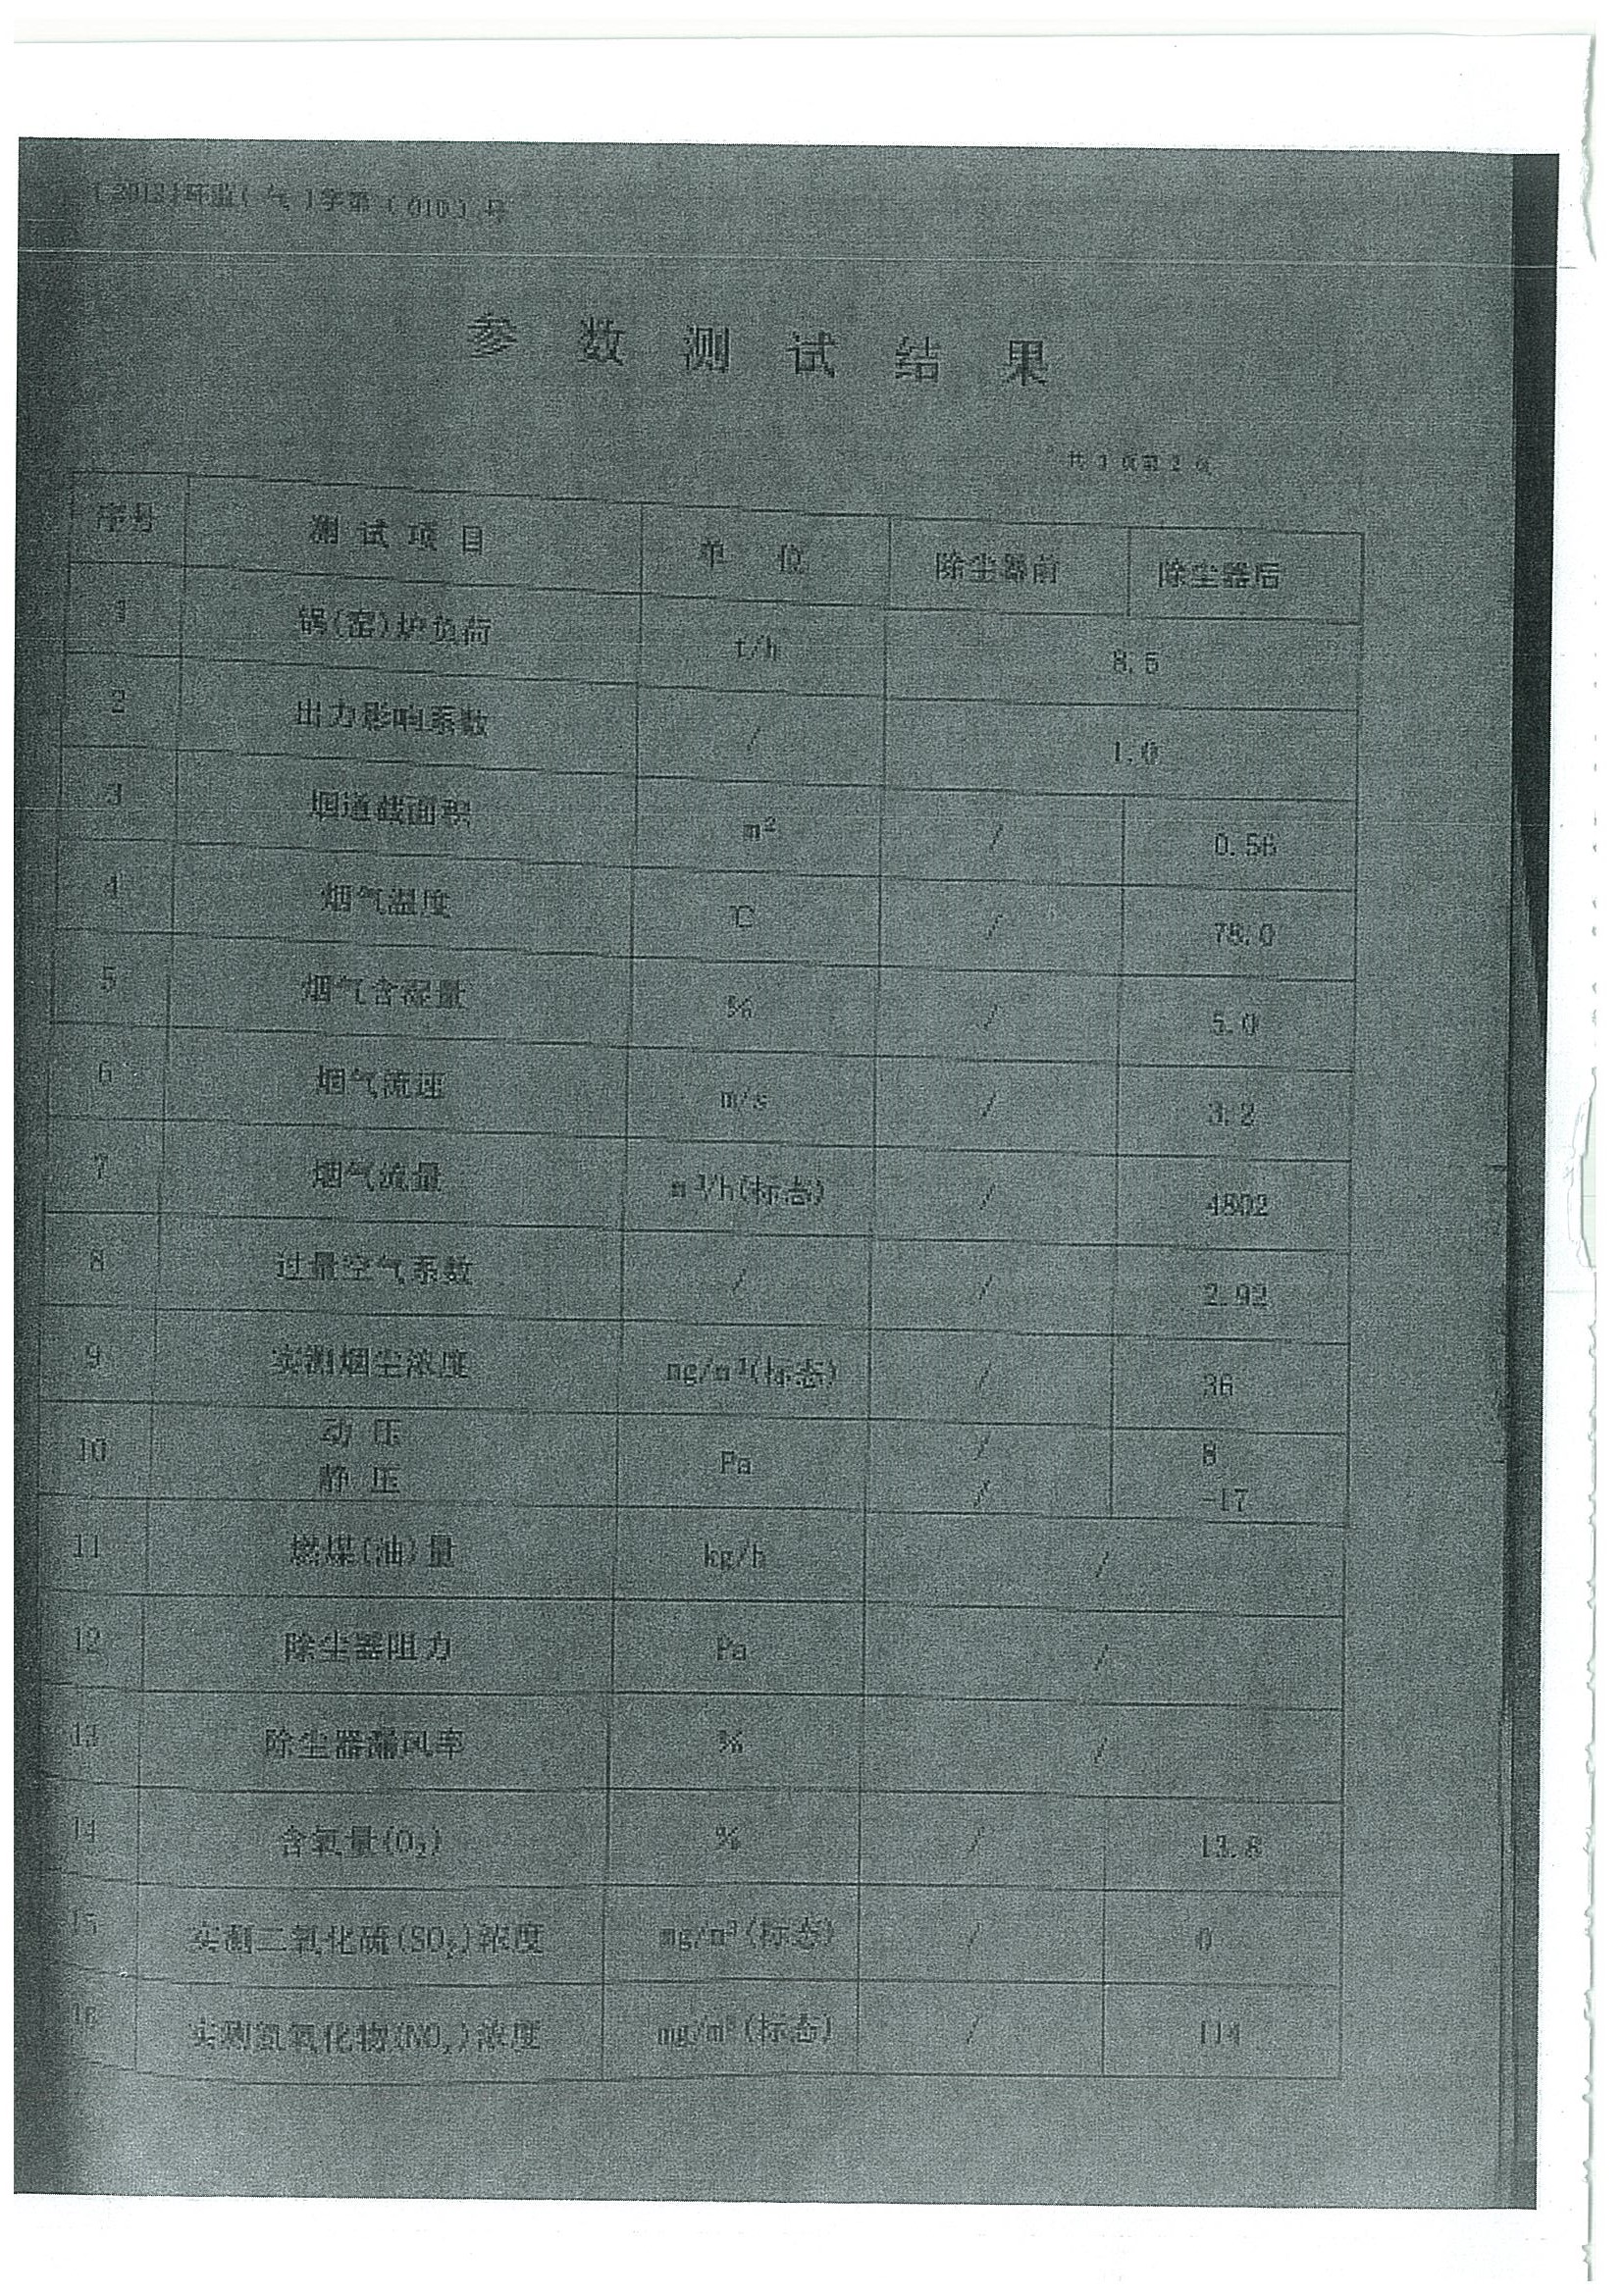 [2013]环监(气)字第(010)号
参数测试结果
共 3 页第 2 页
序号 测试项目 单位 除尘器前 除尘器后
1 锅(窑)炉负荷 t/h 8.5
2 出力影响系数 / 1.0
3 烟道截面积 m² / 0.56
4 烟气温度 ℃ / 78.0
5 烟气含湿量 % / 5.0
6 烟气流速 m/s / 3.2
7 烟气流量 m³/h(标态) / 4802
8 过量空气系数 / / 2.92
9 实测烟尘浓度 mg/m³(标态) / 36
10 动压 Pa / 8
静压 / -17
11 燃煤(油)量 kg/h /
12 除尘器阻力 Pa /
13 除尘器漏风率 % /
14 含氧量(O₂) % / 13.8
15 实测二氧化硫(SO₂)浓度 mg/m³(标态) / 0
16 实测氮氧化物(NOₓ)浓度 mg/m³(标态) / 114